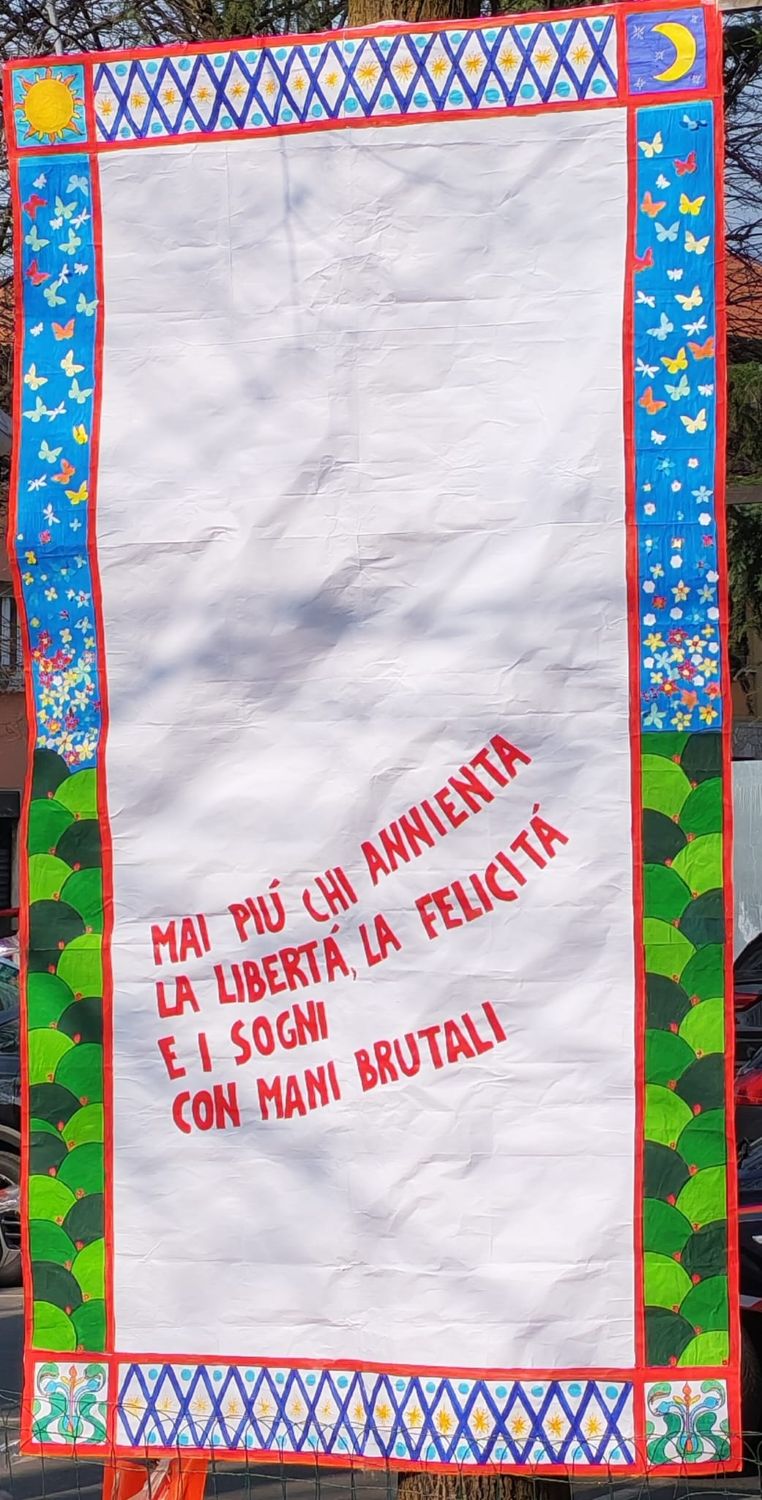 MAI PIÚ CHI ANNIENTA
LA LIBERTÁ, LA FELICITÁ
E I SOGNI
CON MANI BRUTALI